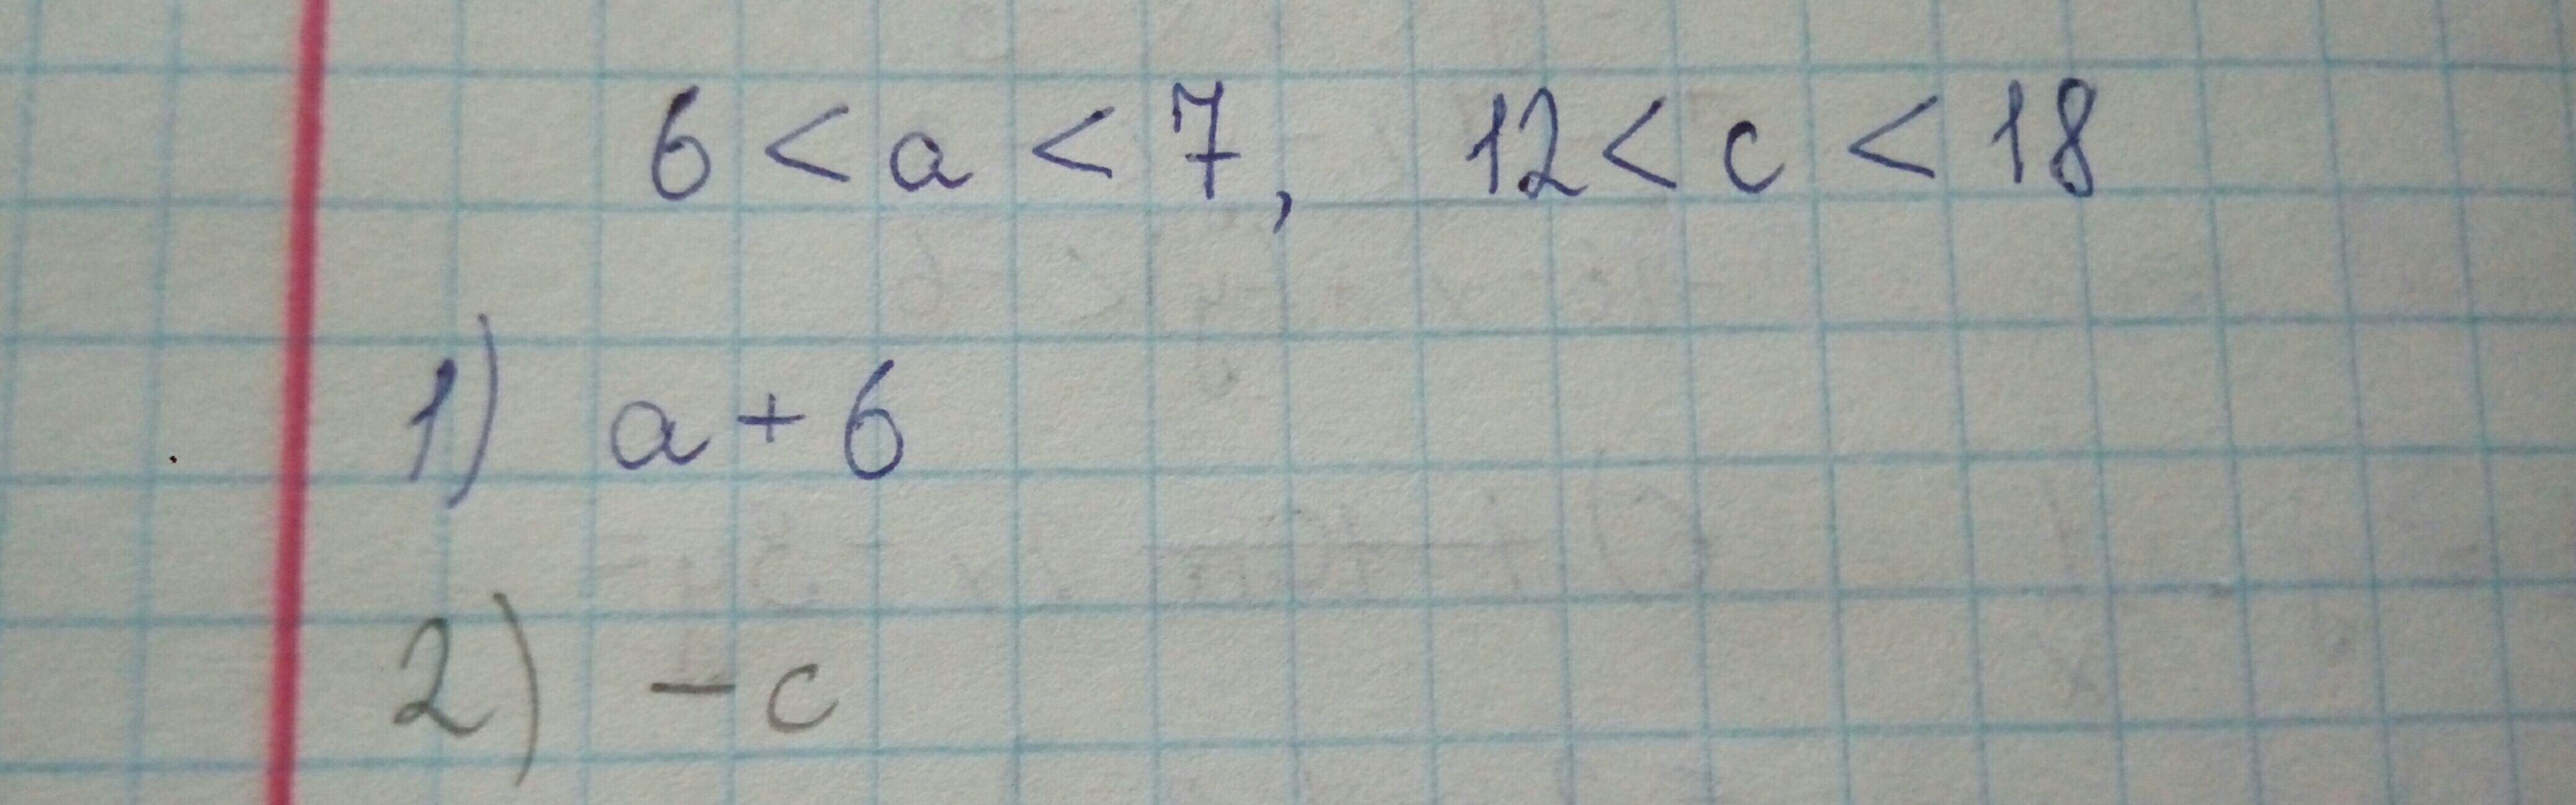 6 < a < 7, 12 < c < 18
1) a + 6
2) - c